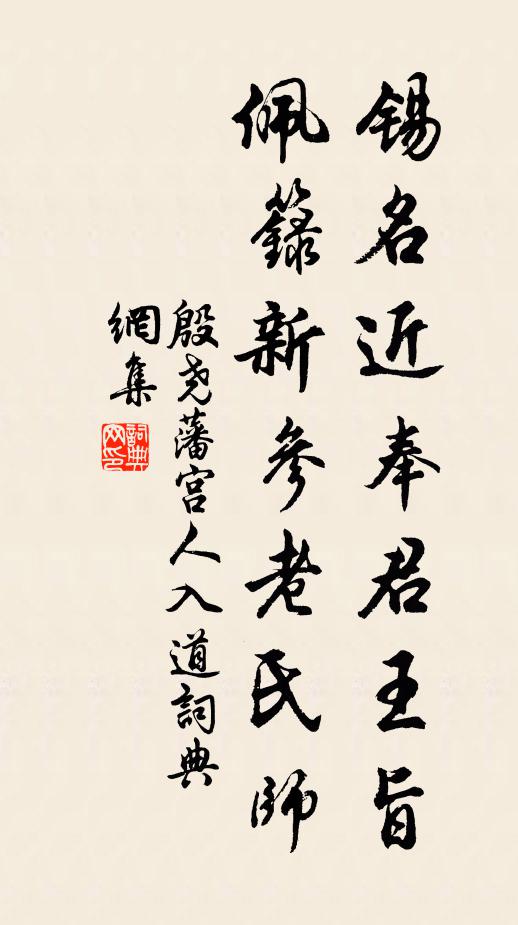 锡名近奉君王旨
佩籙新參老氏師
殷尧藩宫人入道詞典
網集
詞典網印